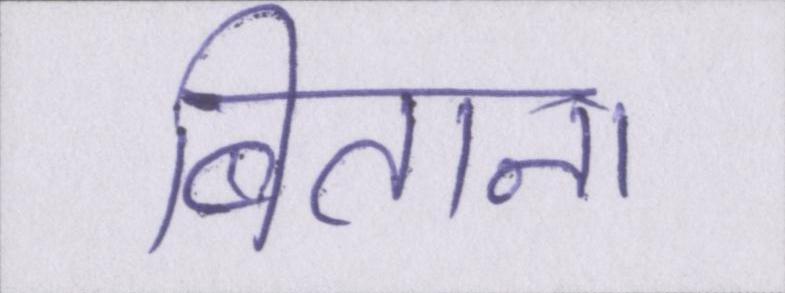 बिताना